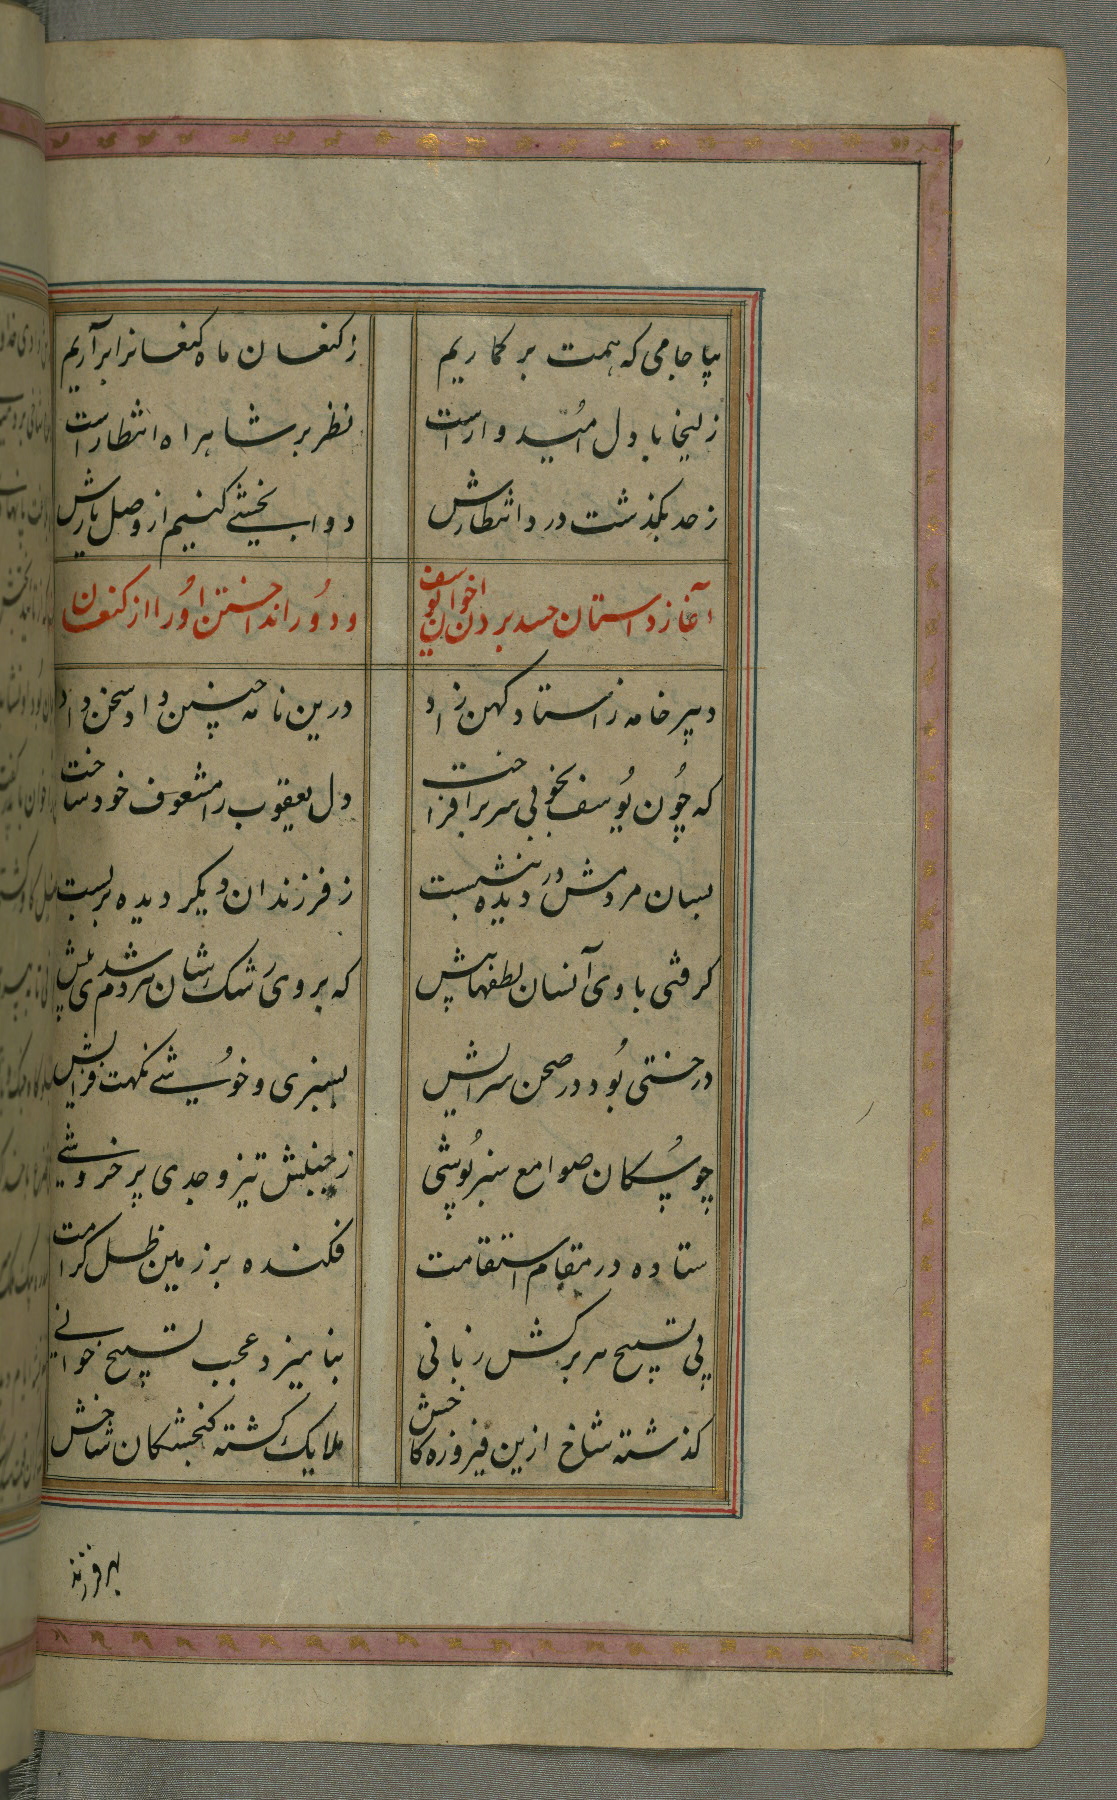 بیا جامی که همت برگماریم
ز کنعان ماه کنعانرا برآریم
زلیخا با دل امّیدوارست
نظر بر شاهراه انتظارست
ز حد بگذشت درد انتظارش
دوا بخشی کنیم از وصل یارش
آغاز داستان حسد بردن اخوان یوسف
و دُور انداختن اُو را از کنعان
دبیر خامه ز استاد کهن زاد
درین نامه چنین داد سخن داد
که چُون یُوسف بخوبی سر برافراخت
دل یعقوب را مشعوف خود ساخت
بسان مردمش در دیده بنشست
ز فرزندان دیگر دیده بربست
گرفتی با وی آنسان لطفها پیش
که بر وی رشک شان هر دم شدی بیش
درختی بُود در صحن سرایش
بسبزی و خوُشی نکهت فزایش
چو سُکان صوامع سبز پُوشی
ز جنبش تیز وجدی پر خروشی
ستاده در مقام استقامت
فکنده بر زمین ظل کرامت
پی تسبیح هر برگش زبانی
بنامیزد عجب تسبیح خوانی
گذشته شاخ ازین فیروزه کاخش
ملایک گشته کنجشکان شاخش
بهر فرزند